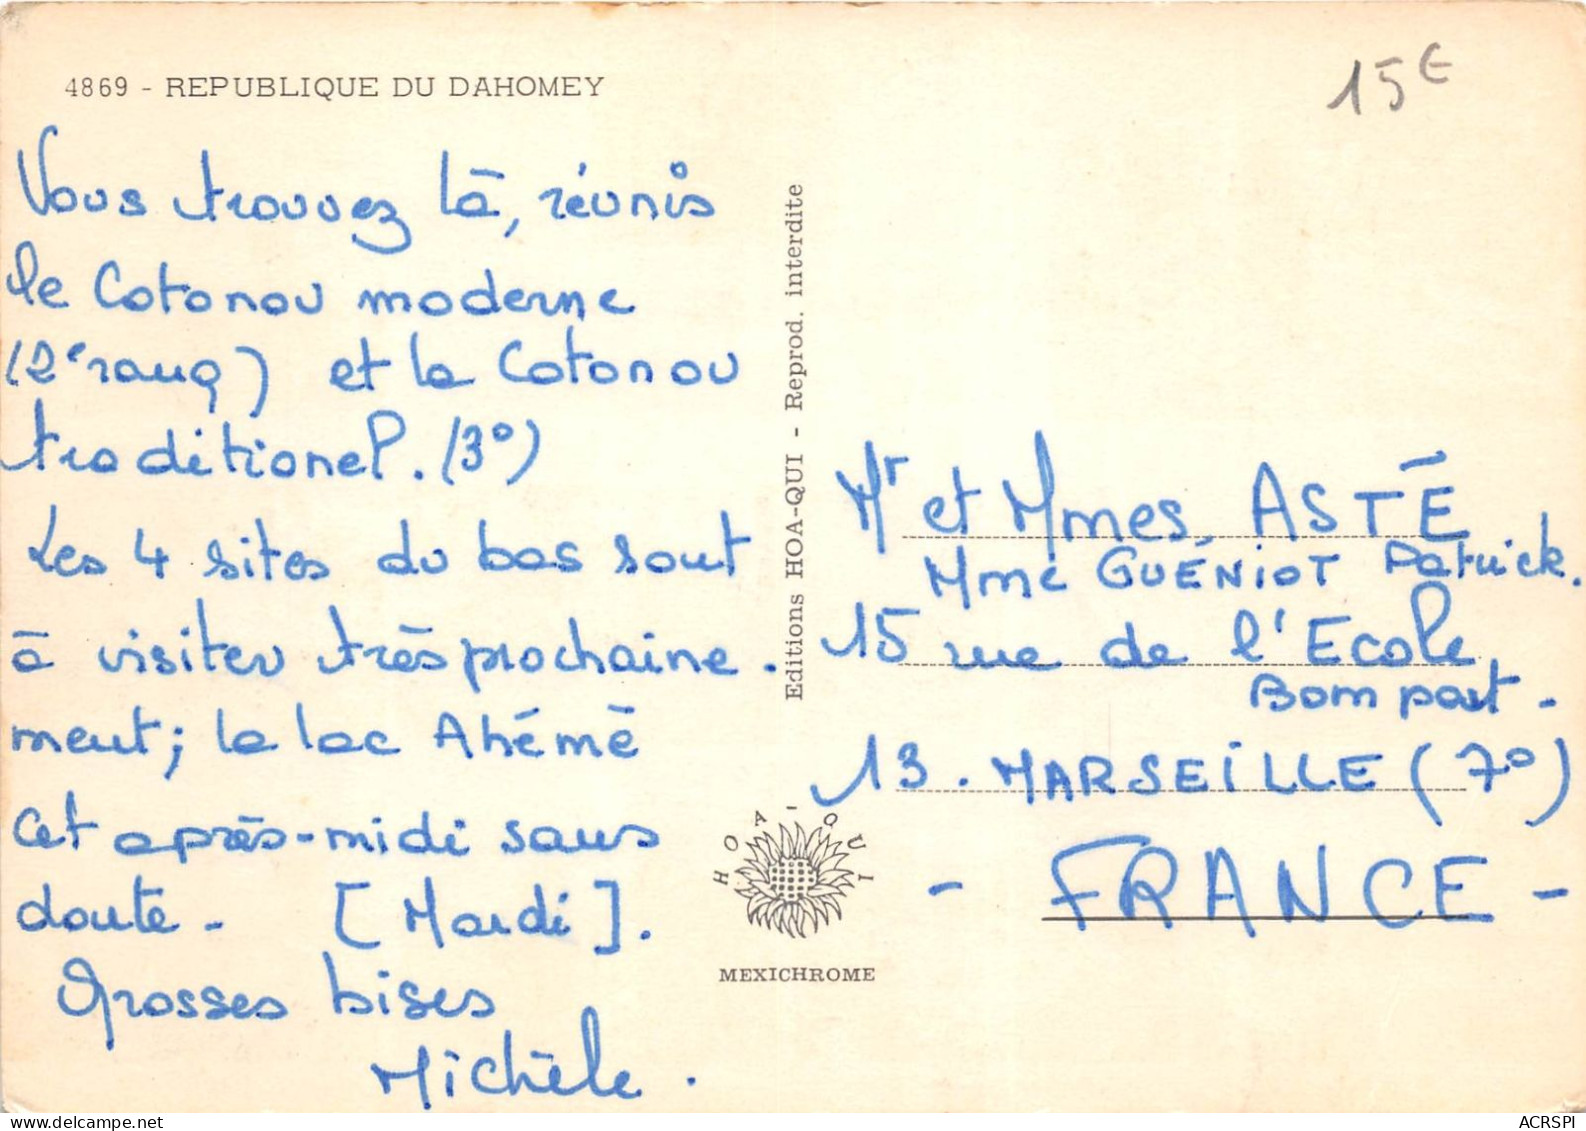 4869 - REPUBLIQUE DU DAHOMEY
15€
Vous trouvez là, réunis
le Cotonou moderne
(2e rang) et le Cotonou
traditionel. (3°)
Les 4 sites du bas sont
à visiter très prochaine.
ment; le lac Ahémé
cet après-midi sans
doute - [Mardi].
Grosses bises
Michèle.
Editions HOA-QUI - Reprod. interdite
HOA-QUI
MEXICHROME
Mr et Mmes ASTÉ
Mme GUÉNIOT Patrick.
15 rue de l'Ecole
Bompart -
13. MARSEILLE (7°)
- FRANCE -
delcampe.net
ACRSPI